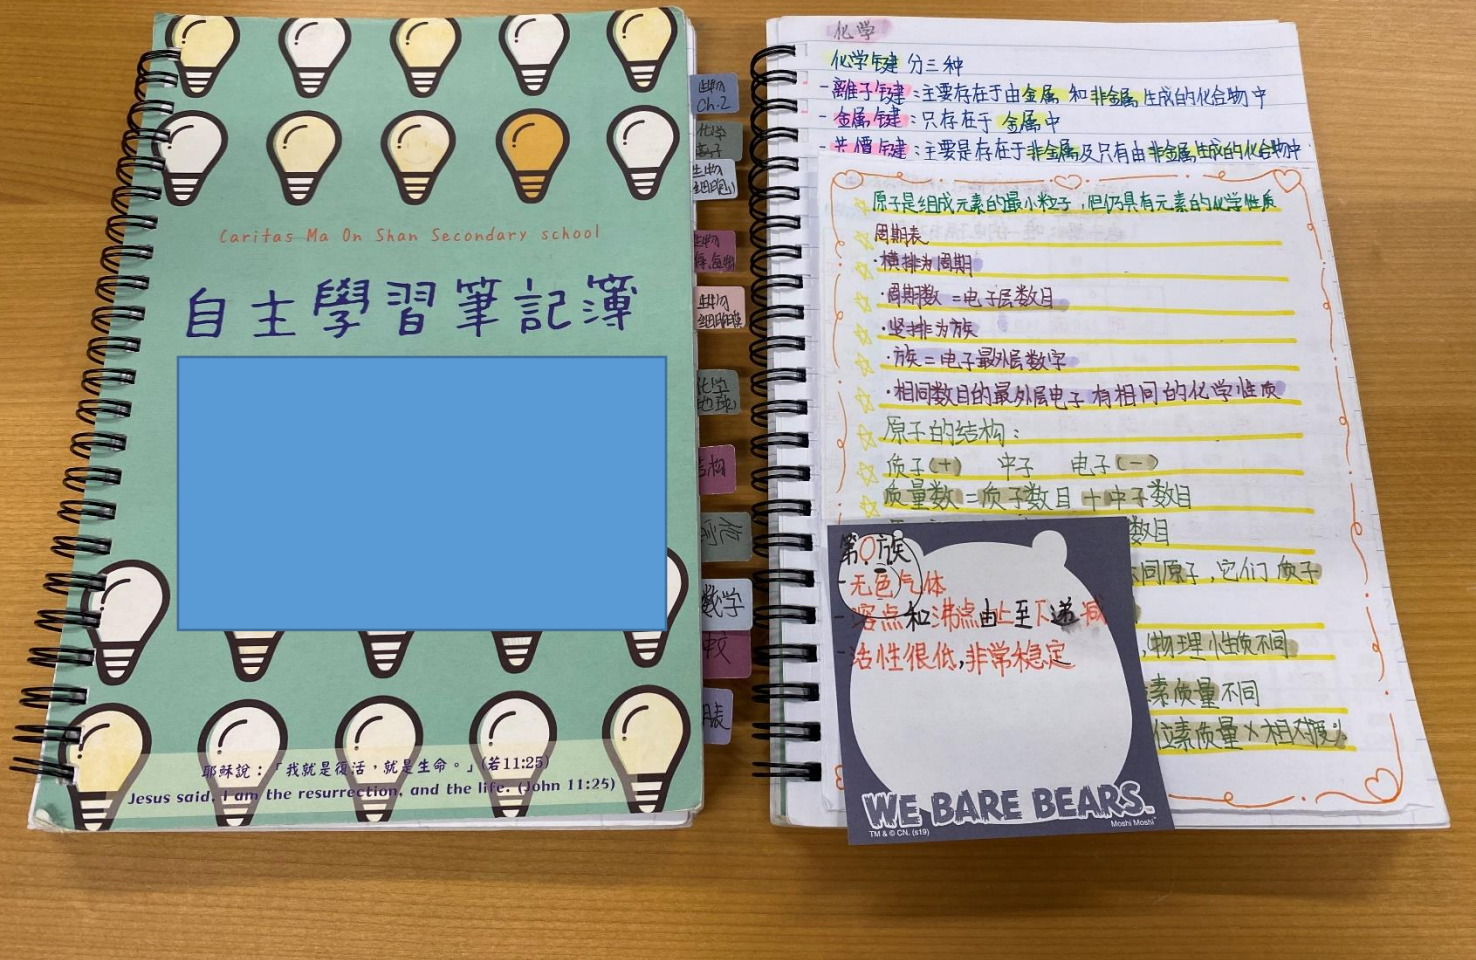 Caritas Ma On Shan Secondary school
自主學習筆記簿
耶穌說：「我就是復活，就是生命。」(若11:25)
Jesus said, I am the resurrection, and the life. (John 11:25)
生物
Ch.2
化学
生物
细胞
生物
生物
化学
地球
结构
数学
中文
化学
化学键 分三种
-離子键：主要存在于由金属 和 非金属 生成的化合物中
- 金属键：只存在于 金属中
- 共價键：主要是存在于非金属及只有由非金属生成的化合物中
原子是组成元素的最小粒子，但仍具有元素的化学性质
周期表
·横排为周期
·周期数 =电子层数目
·竖排为族
·族=电子最外层数字
·相同数目的最外层电子 有相同的化学性质
原子的结构：
质子(+) 中子 电子(-)
质量数=质子数目+中子数目
数目
同原子，它们 质子
,物理性质不同
素质量不同
位素质量×相对
第0族
-无色气体
-溶点和沸点由上至下递减
-活性很低,非常稳定
WE BARE BEARS™
TM & © CN. (s19)
Moshi Moshi